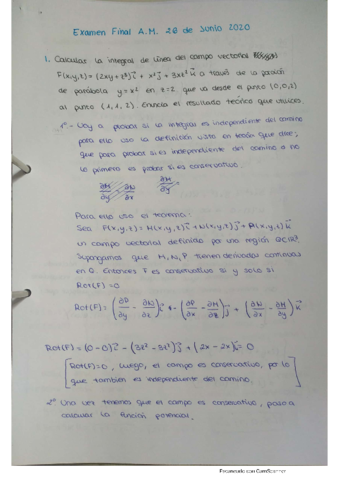 Examen Final A.M. 26 de Junio 2020
1. Calcular la integral de línea del campo vectorial
F(x,y,z) = (2xy+z³)i + x²j + 3xz²k a través de la porción
de parábola y=x² en z=2 que va desde el punto (0,0,2)
al punto (1,1,2). Enuncia el resultado teórico que utilices.
1º - Voy a probar si la integral es independiente del camino
para ello uso la definición vista en teoría que dice,
que para probar si es independiente del camino o no
lo primero es probar si es conservativo.
∂M/∂y = ∂N/∂x ∂M/∂z
Para ello uso el teorema:
Sea F(x,y,z) = M(x,y,z)i + N(x,y,z)j + P(x,y,z)k
un campo vectorial definido por una región Q⊂ℝ³.
Supongamos que M, N, P tienen derivadas continuas
en Q. Entonces F es conservativo si y solo si
Rot(F)=0
Rot(F) = (∂P/∂y − ∂N/∂z)i − (∂P/∂x − ∂M/∂z)j + (∂N/∂x − ∂M/∂y)k
Rot(F) = (0−0)i − (3z²−3z²)j + (2x−2x)k = 0
[Rot(F)=0, luego, el campo es conservativo, por lo
que también es independiente del camino.]
2º Una vez tenemos que el campo es conservativo, paso a
calcular la función potencial.
Escaneado con CamScanner